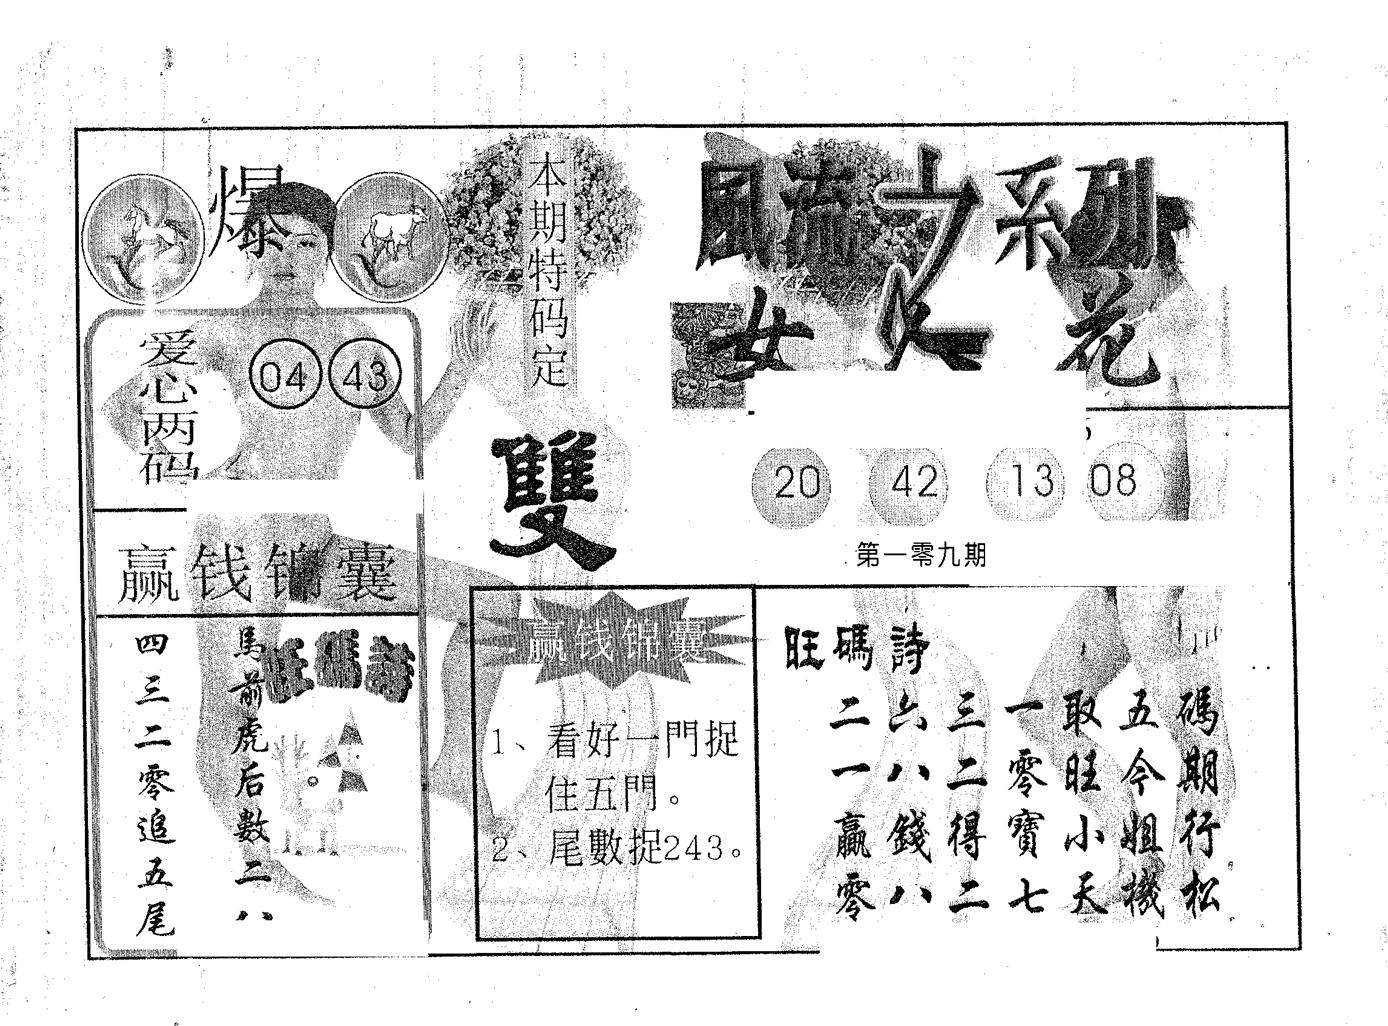 爆
本期特码定
雙
風流之系列
女人花
爱心两码
04 43
20 42 13 08
第一零九期
赢钱锦囊
旺碼詩
馬前虎后数二八
四三二零追五尾
赢钱锦囊
1、看好一門捉
住五門。
2、尾數捉243。
旺碼詩
碼期行松
五今姐機
取旺小天
一零寶七
三二得二
六八錢八
二一贏零